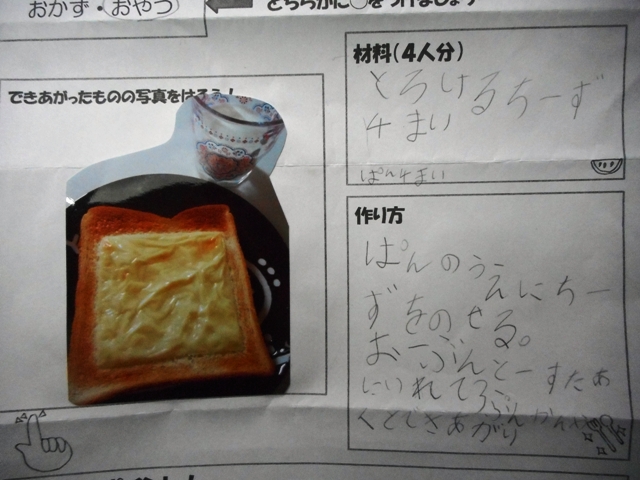 おかず・おやつ
どちらかに○をつけましょう
できあがったものの写真をはろう！
材料(4人分)
とろけるちーず
4まい
ぱん4まい
作り方
ぱんのうえにちー
ずをのせる。
おーぶんとーすたあ
にいれて
くとできあがり